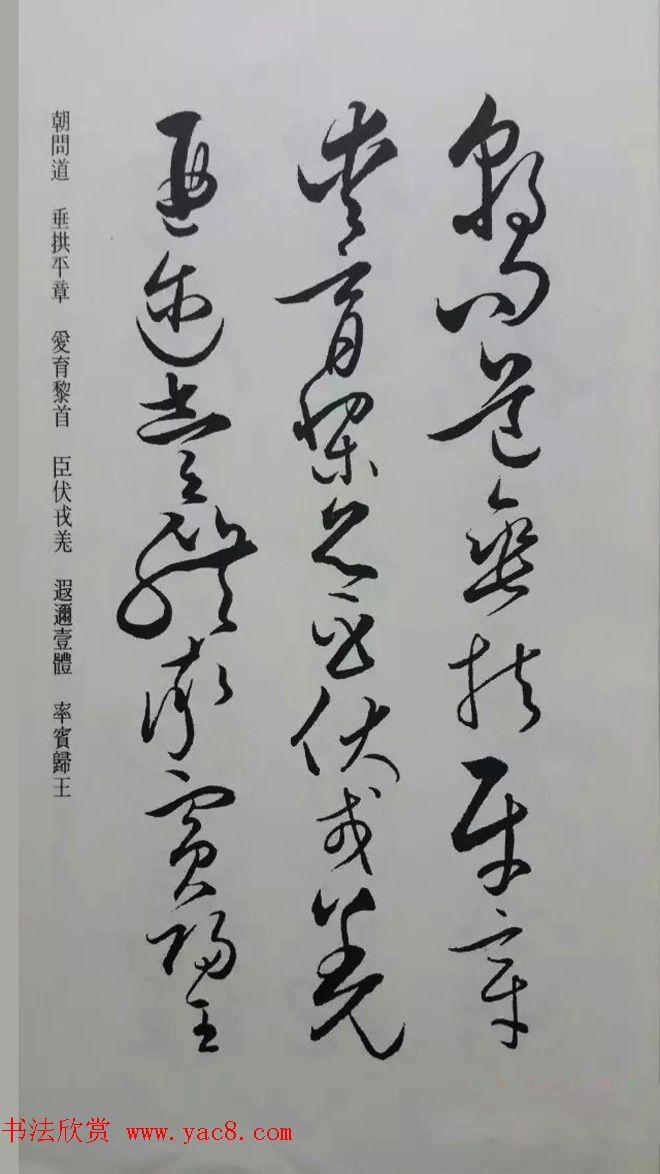 朝問道垂拱平章
愛育黎首臣伏戎羌
遐邇壹體率賓歸王
朝問道 垂拱平章 愛育黎首 臣伏戎羌 遐邇壹體 率賓歸王
书法欣赏 www.yac8.com